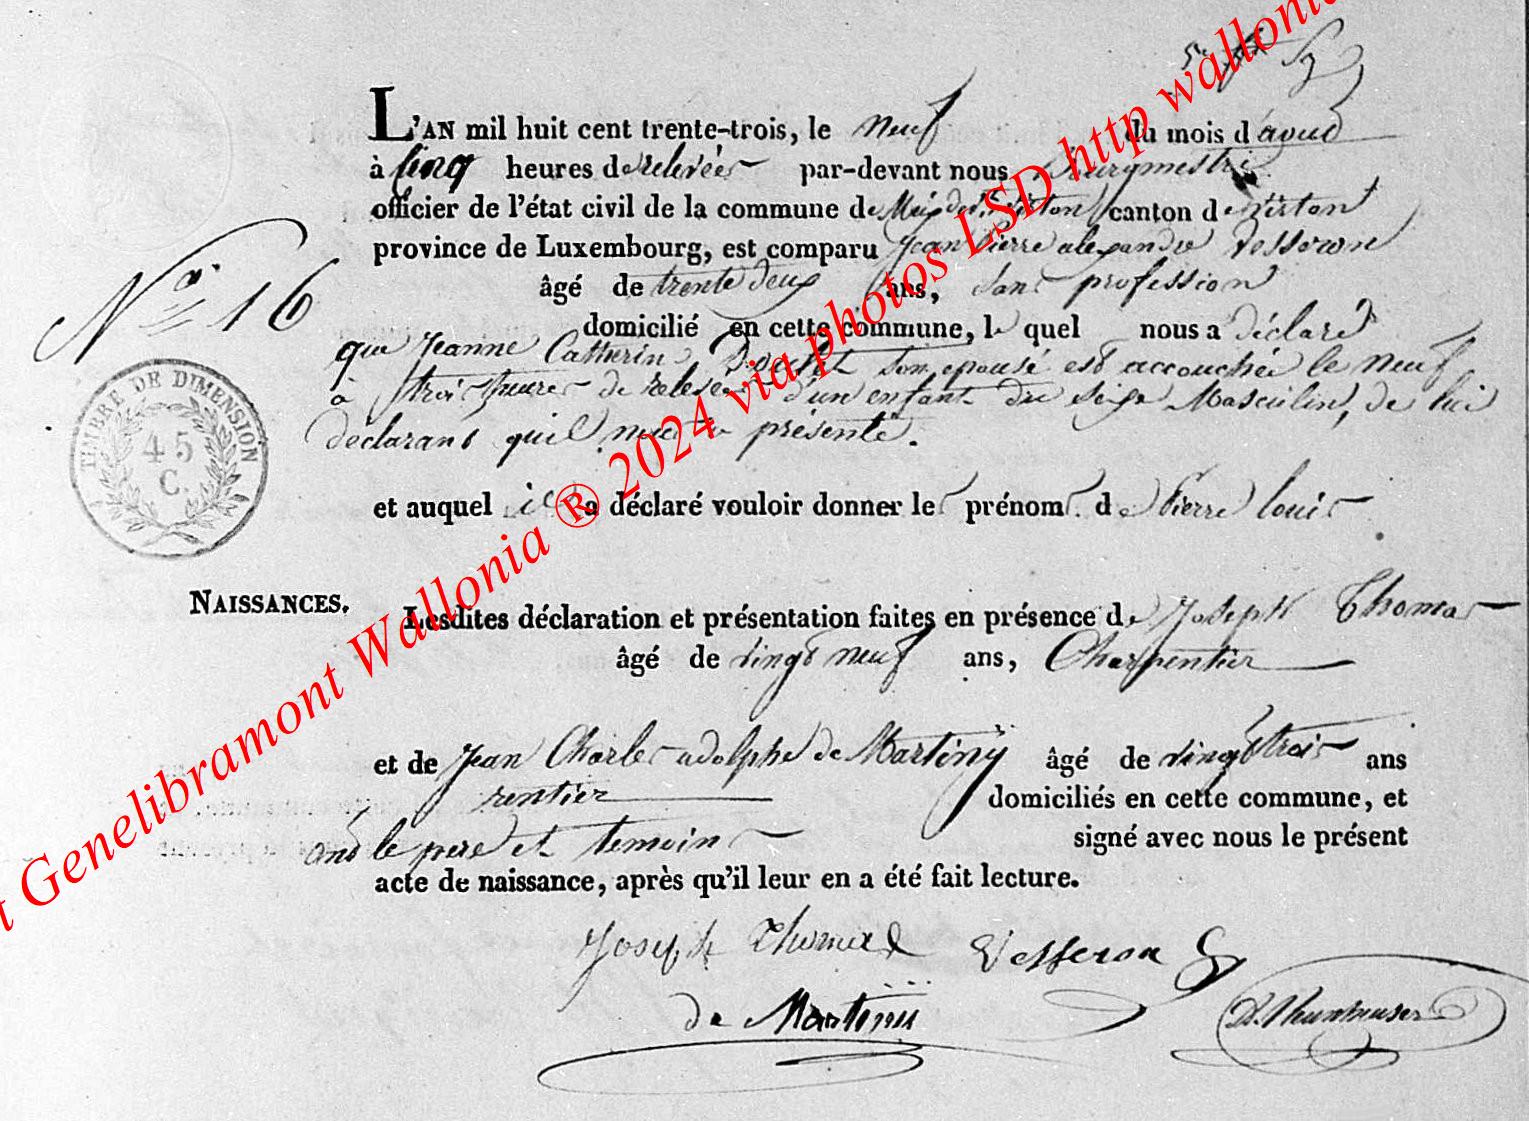 L'AN mil huit cent trente-trois, le neuf du mois d'aout
à cinq heures de relevées par-devant nous Bourgmestre
officier de l'état civil de la commune de Meix devt Virton canton de Virton
province de Luxembourg, est comparu Jean Pierre alexandre Vesseron
âgé de trente deux ans, sans profession
N° 16
domicilié en cette commune, le quel nous a déclaré
que Jeanne Catherin son epouse est accouchée le neuf
à trois heures de relevée d'un enfant du sexe Masculin, de lui
declarant quil nous a présenté.
TIMBRE DE DIMENSION
45
C.
et auquel il a déclaré vouloir donner les prénoms de Pierre louis
NAISSANCES.
Lesdites déclaration et présentation faites en présence de Joseph Thomas
âgé de vingt neuf ans, Charpentier
et de Jean Charles adolphe de Martiny âgé de vingt trois ans
rentier domiciliés en cette commune, et
ont le pere et temoins signé avec nous le présent
acte de naissance, après qu'il leur en a été fait lecture.
Joseph Thomas Vesseron
de Martinij
Genelibramont Wallonia ® 2024 via photos LSD http wallonia